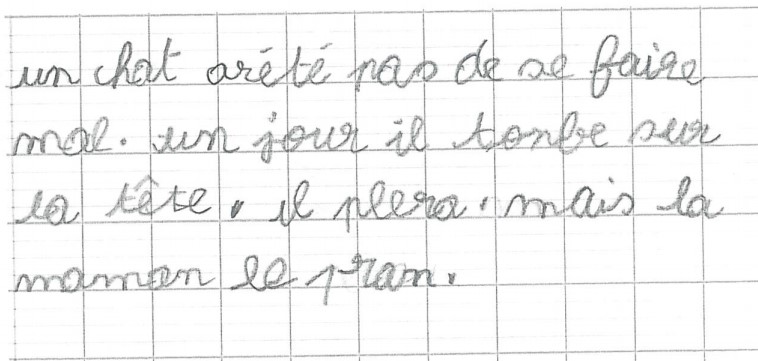 un chat arété pas de se faire
mal. un jour il tonbe sur
la tête. il plera. mais la
maman le pram.